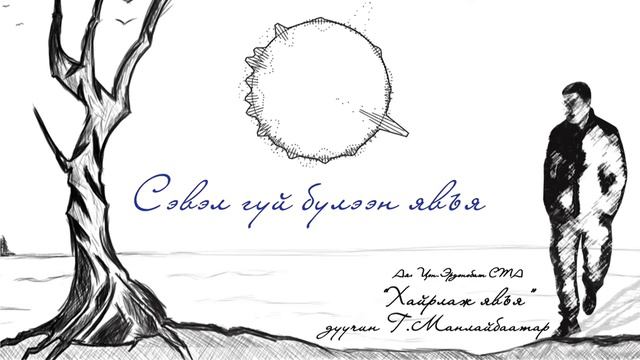 Сэвэл гүй бүлээн явъя
Ая: Цэн.Эрдэнэбат СТА
"Хайрлаж явъя"
дуучин Т.Манлайбаатар